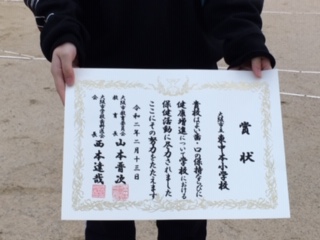 賞状
大阪市立東中本小学校
貴校はよい歯・口の保持ならびに
健康増進について学校における
保健活動に尽力されました
ここにその努力をたたえます
令和二年二月十三日
大阪市教育委員会
教育長 山本晋次
大阪市学校歯科医会
会長 西本達哉